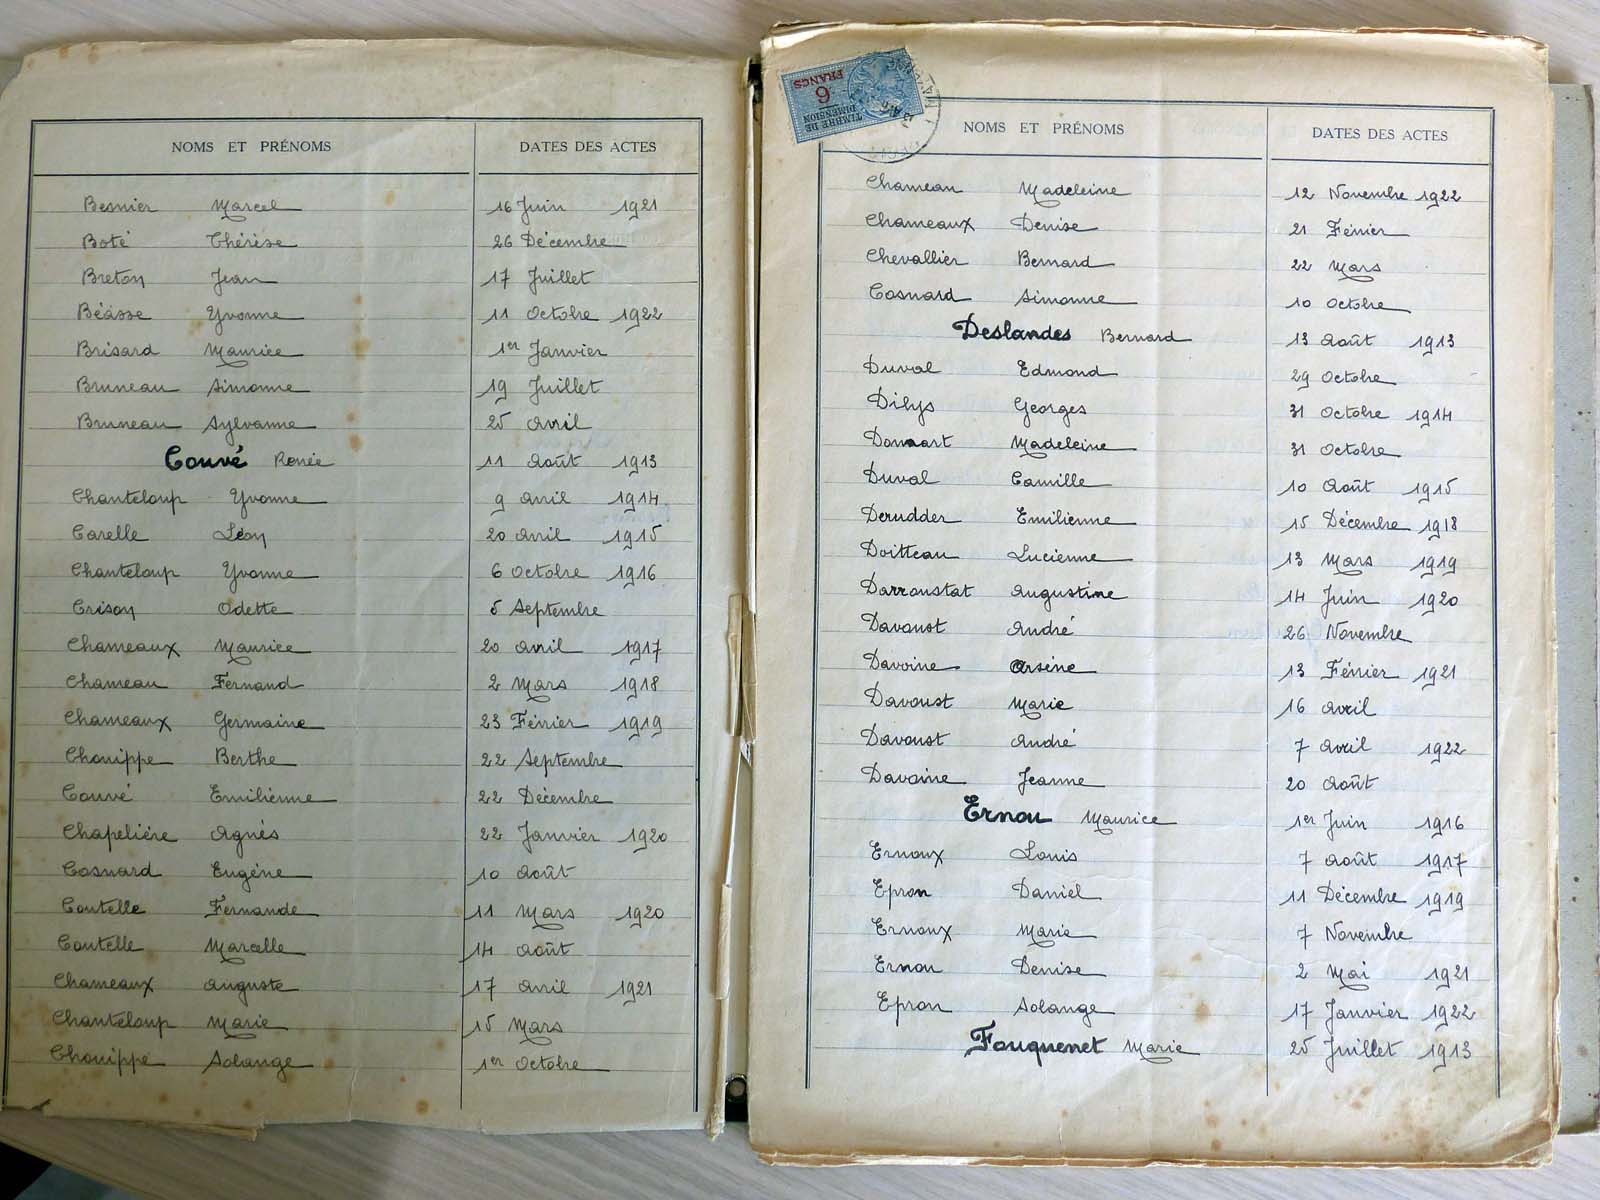 NOMS ET PRÉNOMS DATES DES ACTES
Besnier Marcel 16 Juin 1921
Boté Thérèse 26 Décembre
Breton Jean 17 Juillet
Béasse Yvonne 11 Octobre 1922
Brisard Maurice 1er Janvier
Bruneau Simonne 19 Juillet
Bruneau Sylvanne 25 Avril
Couvé Renée 11 Août 1913
Chanteloup Yvonne 9 Avril 1914
Carelle Léon 20 Avril 1915
Chanteloup Yvonne 6 Octobre 1916
Crison Odette 5 Septembre
Chameaux Maurice 20 Avril 1917
Chameau Fernand 2 Mars 1918
Chameaux Germaine 23 Février 1919
Chouippe Berthe 22 Septembre
Couvé Emilienne 22 Décembre
Chapelière Agnès 22 Janvier 1920
Cosnard Eugène 10 Août
Coutelle Fernande 11 Mars 1920
Coutelle Marcelle 14 Août
Chameaux Auguste 17 Avril 1921
Chanteloup Marie 15 Mars
Chouippe Solange 1er Octobre
TIMBRE DE
DIMENSION
6
FRANCS
NOMS ET PRÉNOMS DATES DES ACTES
Chameau Madeleine 12 Novembre 1922
Chameaux Denise 21 Février
Chevallier Bernard 22 Mars
Cosnard Simonne 10 Octobre
Deslandes Bernard 13 Août 1913
Duval Edmond 29 Octobre
Dilys Georges 31 Octobre 1914
Donnart Madeleine 31 Octobre
Duval Camille 10 Août 1915
Derudder Emilienne 15 Décembre 1918
Doitteau Lucienne 13 Mars 1919
Darronstat Augustine 14 Juin 1920
Davoust André 26 Novembre
Davoine Arsène 13 Février 1921
Davoust Marie 16 Avril
Davoust André 7 Avril 1922
Davoine Jeanne 20 Août
Ernou Maurice 1er Juin 1916
Ernoux Louis 7 Août 1917
Epron Daniel 11 Décembre 1919
Ernoux Marie 7 Novembre
Ernou Denise 2 Mai 1921
Epron Solange 17 Janvier 1922
Fouquenet Marie 25 Juillet 1913